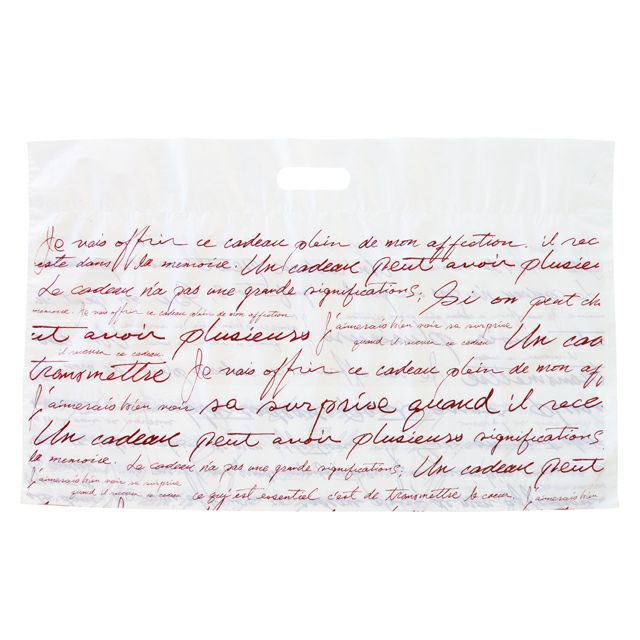 Je vais offrir ce cadeau plein de mon affiction. il rec
este dans la memoire. Un cadeau peut avoir plusieu
Le cadeau n'a pas une grande significations; Si on peut ch
memoire. Je vais offrir ce cadeau plein de mon affiction
ut avoir plusieurs j'aimerais bien voir sa surprise Un cad
il recever ce cadeau quand il recever ce cadeau
transmettre Je vais offrir ce cadeau plein de mon aff
j'aimerais bien voir sa surprise quand il rece
Un cadeau peut avoir plusieurs significations
la memoire. Le cadeau n'a pas une grande significations; Un cadeau peut
j'aimerais bien voir sa surprise
quand il recever ce cadeau ce qu'est essentiel c'est de transmettre le coeur. j'aimerais bien